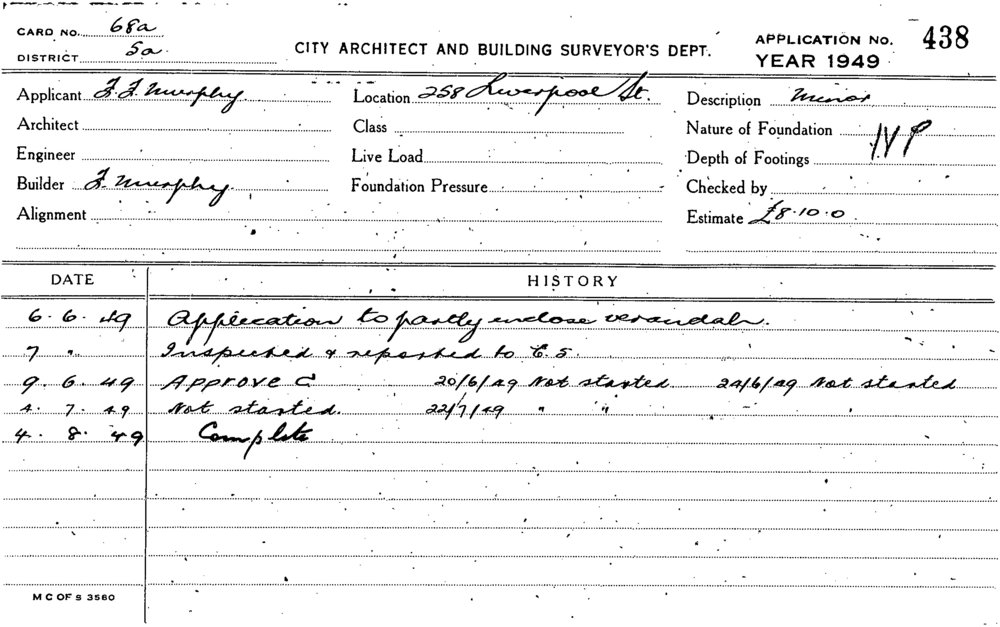 CARD No. 68a
DISTRICT 5a.
CITY ARCHITECT AND BUILDING SURVEYOR'S DEPT.
APPLICATION No. 438
YEAR 1949
Applicant J. J. Murphy
Location 258 Liverpool St.
Description Minor
Architect
Class
Nature of Foundation
Engineer
Live Load
Depth of Footings
Builder J. Murphy.
Foundation Pressure
Checked by
Alignment
Estimate £8.10.0
DATE HISTORY
6. 6. 49 Application to partly enclose verandah.
7 " Inspected & reported to C. S.
9. 6. 49 Approve C 20/6/49 Not started. 24/6/49 Not started
4. 7. 49 Not started. 22/7/49 " "
4. 8. 49 Complete
M C OF S 3560